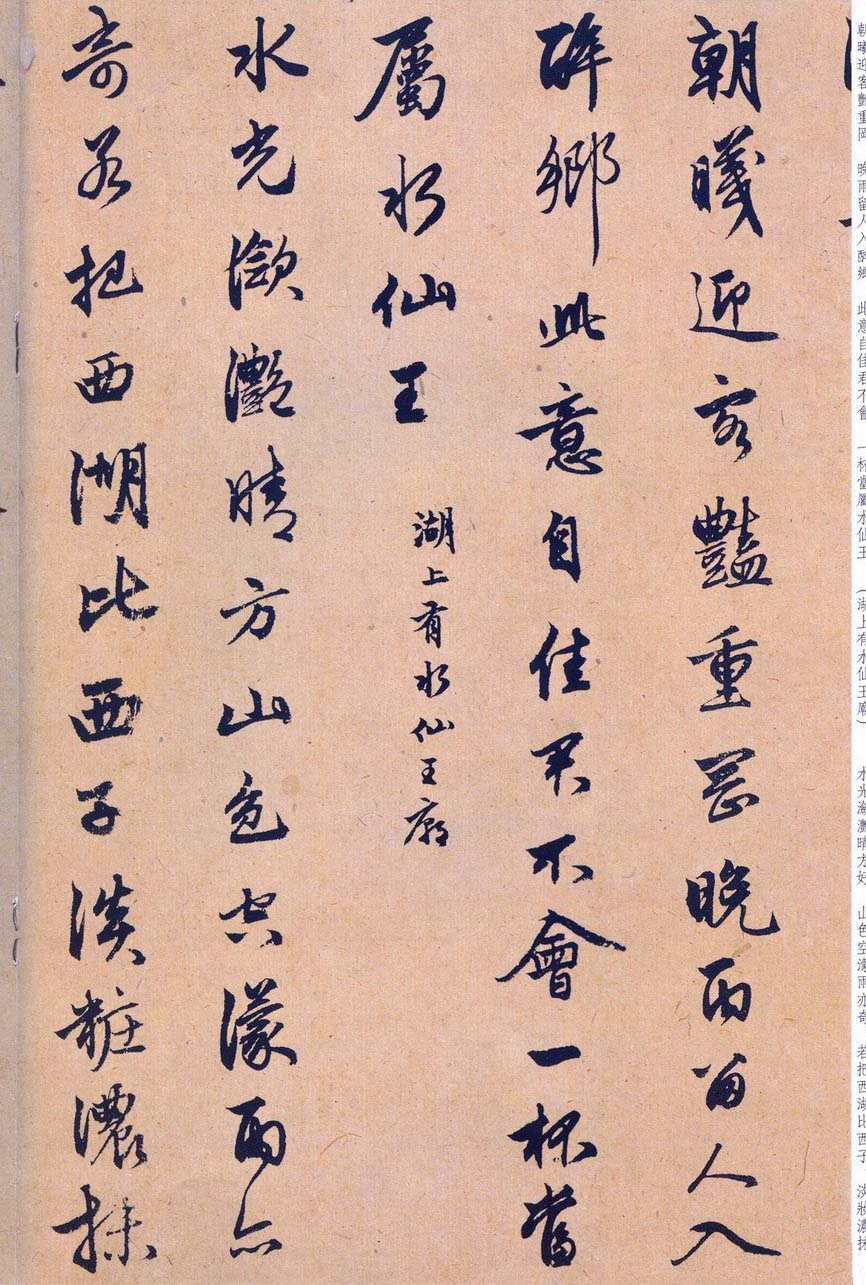 朝曦迎客豔重岡 晚雨留人入醉鄉 此意自佳君不會 一杯當屬水仙王 (湖上有水仙王廟) 水光瀲灩晴方好 山色空濛雨亦奇 若把西湖比西子 淡妝濃抹
朝曦迎客豔重岡晚雨留人入
醉鄉此意自佳君不會一杯當
屬水仙王
湖上有水仙王廟
水光瀲灩晴方山色空濛雨亦
奇若把西湖比西子淡粧濃抹